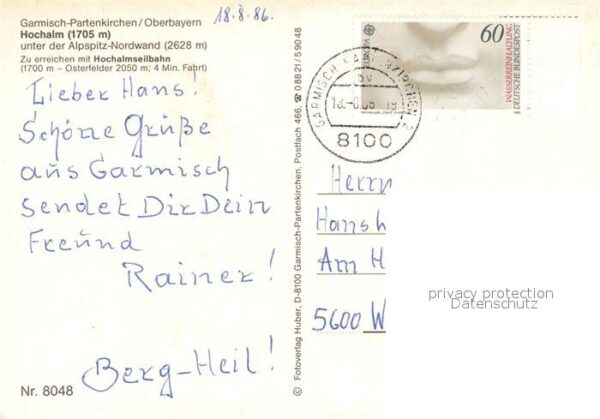 Garmisch-Partenkirchen/Oberbayern
Hochalm (1705 m)
unter der Alpspitz-Nordwand (2628 m)
Zu erreichen mit Hochalmseilbahn
(1700 m – Osterfelder 2050 m; 4 Min. Fahrt)
18.8.86.
Lieber Hans!
Schöne Grüße
aus Garmisch
sendet Dir Dein
Freund
Rainer!
Berg-Heil!
Nr. 8048
© Fotoverlag Huber, D-8100 Garmisch-Partenkirchen, Postfach 466, ☎ 0 88 21/5 90 48
EUROPA
60
WASSERREINHALTUNG
DEUTSCHE BUNDESPOST
GARMISCH-PARTENKIRCHEN 2
bv
8100
Herrn
Hansh
Am H
5600 W
privacy protection
Datenschutz